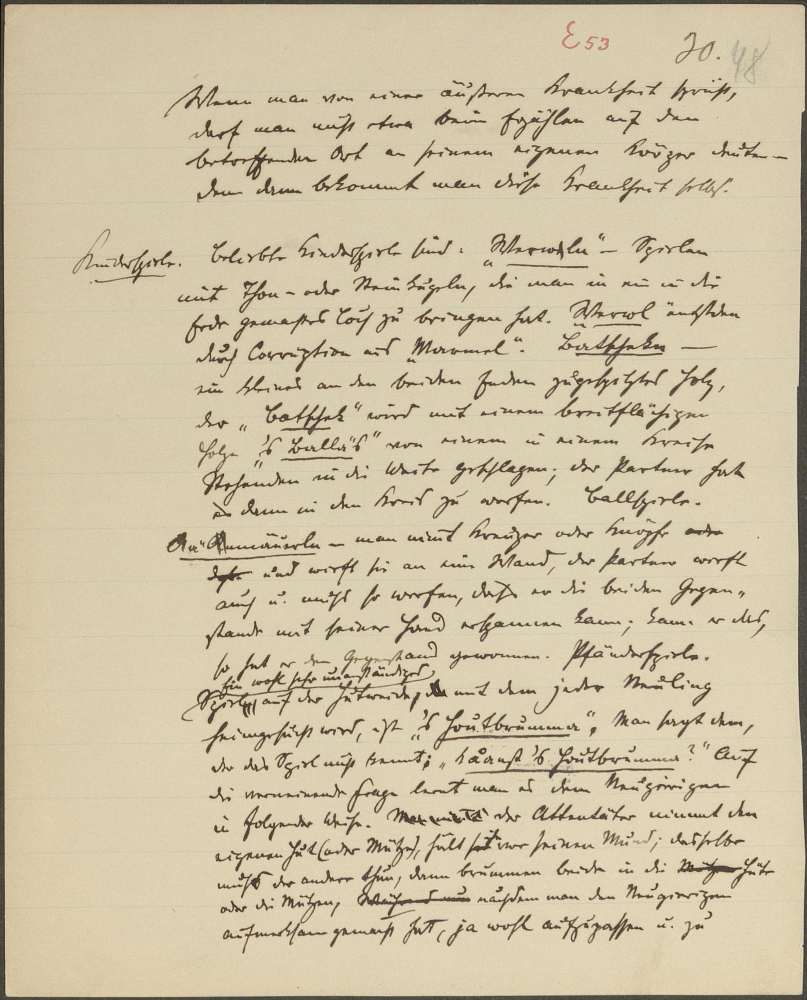 E 53
30.
48
Wenn man von einer äußeren Krankheit spricht,
darf man nicht etwa beim Erzählen auf den
betreffenden Ort an seinem eigenen Körper deuten –
denn dann bekommt man diese Krankheit selbst.
Kinderspiele. Beliebte Kinderspiele sind: "Werweln" – Spielen
mit Thon- oder Steinkugeln, die man in ein in die
Erde gemachtes Loch zu bringen hat. "Werwel" entstanden
durch Corruption aus "Marmel". Batscheken –
ein kleines an den beiden Enden zugespitztes Holz,
der "Batschek" wird mit einem breitflächigen
Holze "'s Ballà's" von einem in einem Kreise
Stehenden in die Weite geschlagen; der Partner hat
es dann in den Kreis zu werfen. Ballspiele.
"Anmäuerln – man nimmt Kreuzer oder Knöpfe oder
und wirft sie an eine Wand, der Partner wirft
auch u. muß so werfen, daß er die beiden Gegen-
stände mit seiner Hand erspannen kann; kann er das,
so hat er den Gegenstand gewonnen. Pfänderspiele.
Ein wohl sehr unanständiges
Spiel auf der Hutweide, mit dem jeder Neuling
heimgesucht wird, ist "'s Houtbrumma". Man sagt dem,
der das Spiel nicht kennt; "kåanst 's Houtbrumma?" Auf
die verneinende Frage lernt man es dem Neugierigen
in folgender Weise. der Attentäter nimmt den
eigenen Hut (oder Mütze), hält sie vor seinen Mund; dasselbe
muß der andere thun, dann brummen beide in die Mütze Hüte
oder die Mützen, nachdem man den Neugierigen
aufmerksam gemacht hat, ja wohl aufzupassen u. zu